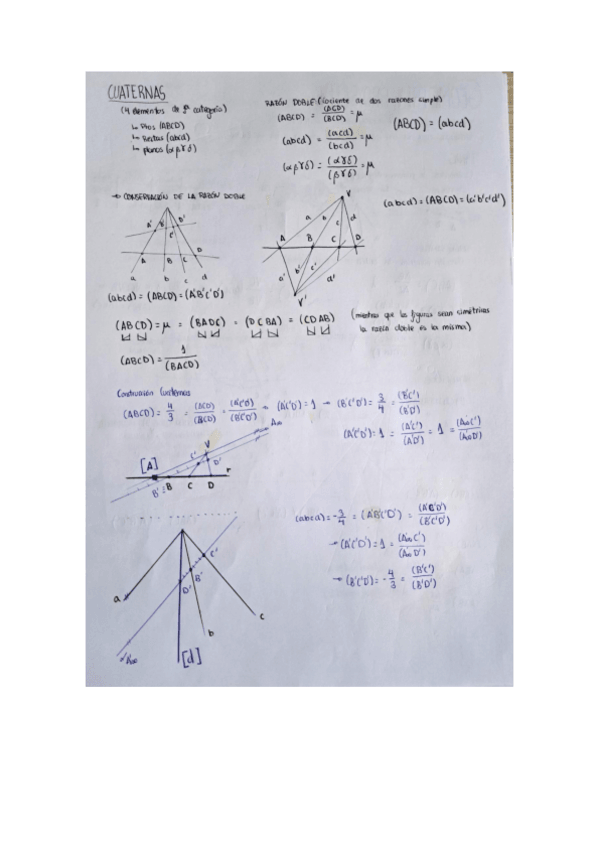 CUATERNAS
(4 elementos de 1ª categoría)
↳ Ptos (ABCD)
↳ Rectas (abcd)
↳ planos (αβγδ)
RAZÓN DOBLE (cociente de dos razones simples)
(ABCD) = (ACD)/(BCD) = μ
(abcd) = (acd)/(bcd) = μ
(αβγδ) = (αγδ)/(βγδ) = μ
(ABCD) = (abcd)
→ CONSERVACIÓN DE LA RAZÓN DOBLE
A' B' C' D'
A B C D
a b c d
(abcd) = (ABCD) = (A'B'C'D')
V
a b c d
A B C D
a' b' c' d'
V'
(abcd) = (ABCD) = (a'b'c'd')
(ABCD) = μ = (BADC) = (DCBA) = (CDAB)
(mientras que las figuras sean simétricas
la razón doble es la misma)
(ABCD) = 1/(BACD)
Construcción Cuaternas
(ABCD) = 4/3 = (ACD)/(BCD) = (A'C'D')/(B'C'D') = (A'C'D') = 1 → (B'C'D') = 3/4 = (B'C')/(B'D')
(A'C'D') = 1 = (A'C')/(A'D') = 1 = (A'∞C')/(A'∞D')
A∞
V
C' D'
[A] r
B' B C D
(abcd) = -3/4 = (A'B'C'D') = (A'C'D')/(B'C'D')
→ (A'C'D') = 1 = (A∞C')/(A∞D')
→ (B'C'D') = -4/3 = (B'C')/(B'D')
C'
B'
D'
a
c
b
A∞
[d]